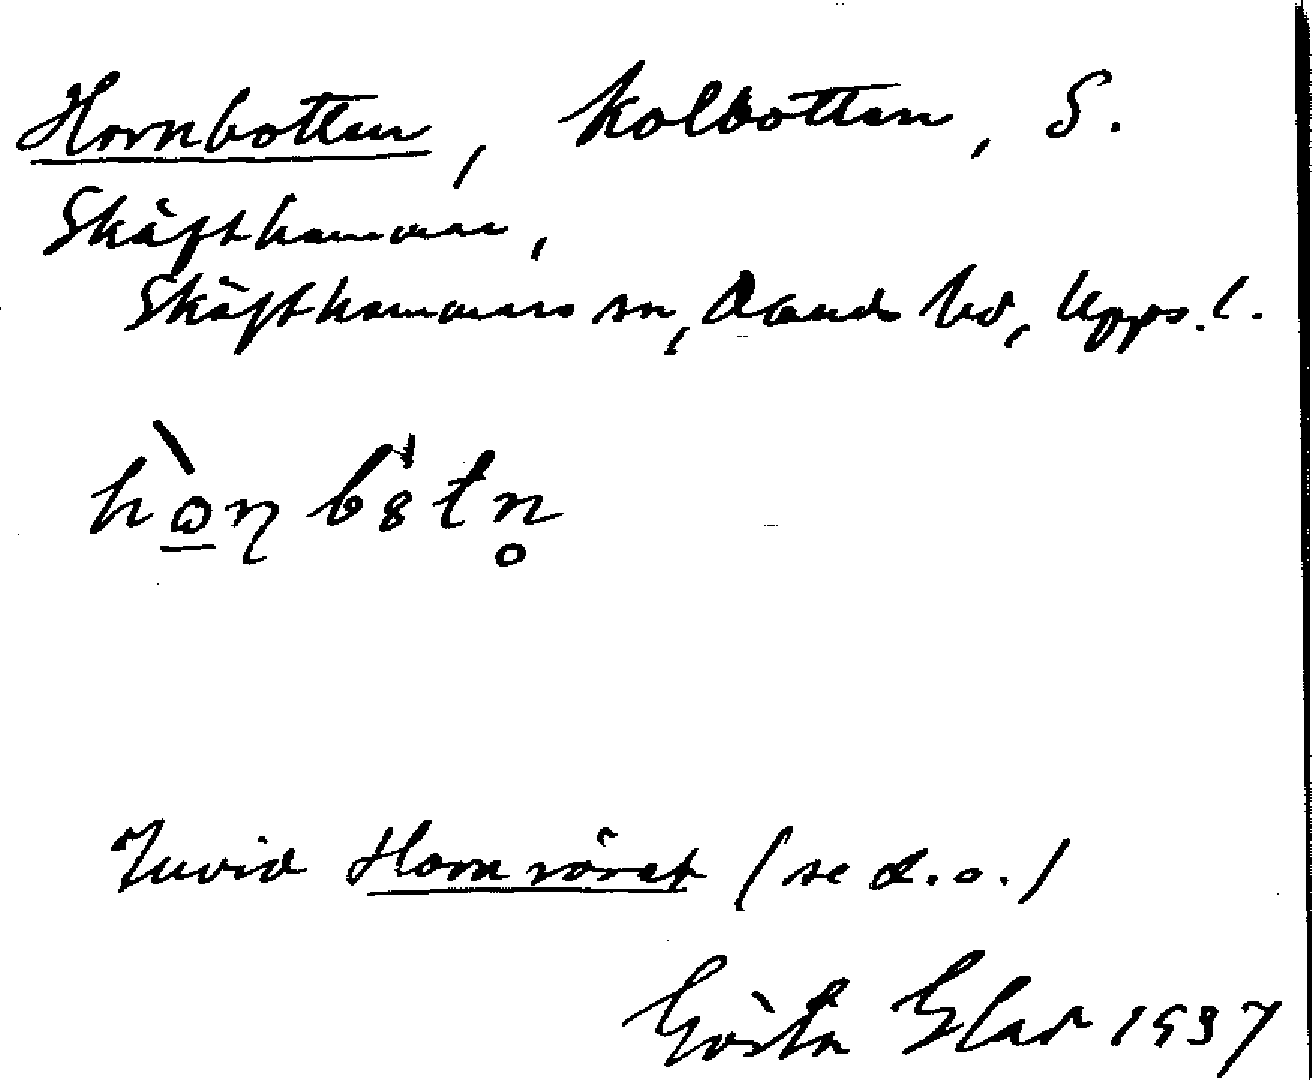 Hornbotten, kolbotten, S.
Skäfthammar,
Skäfthammars sn, Olands hd, Upps. l.
Invid Hornröret (se d.o.)
Gösta 1937